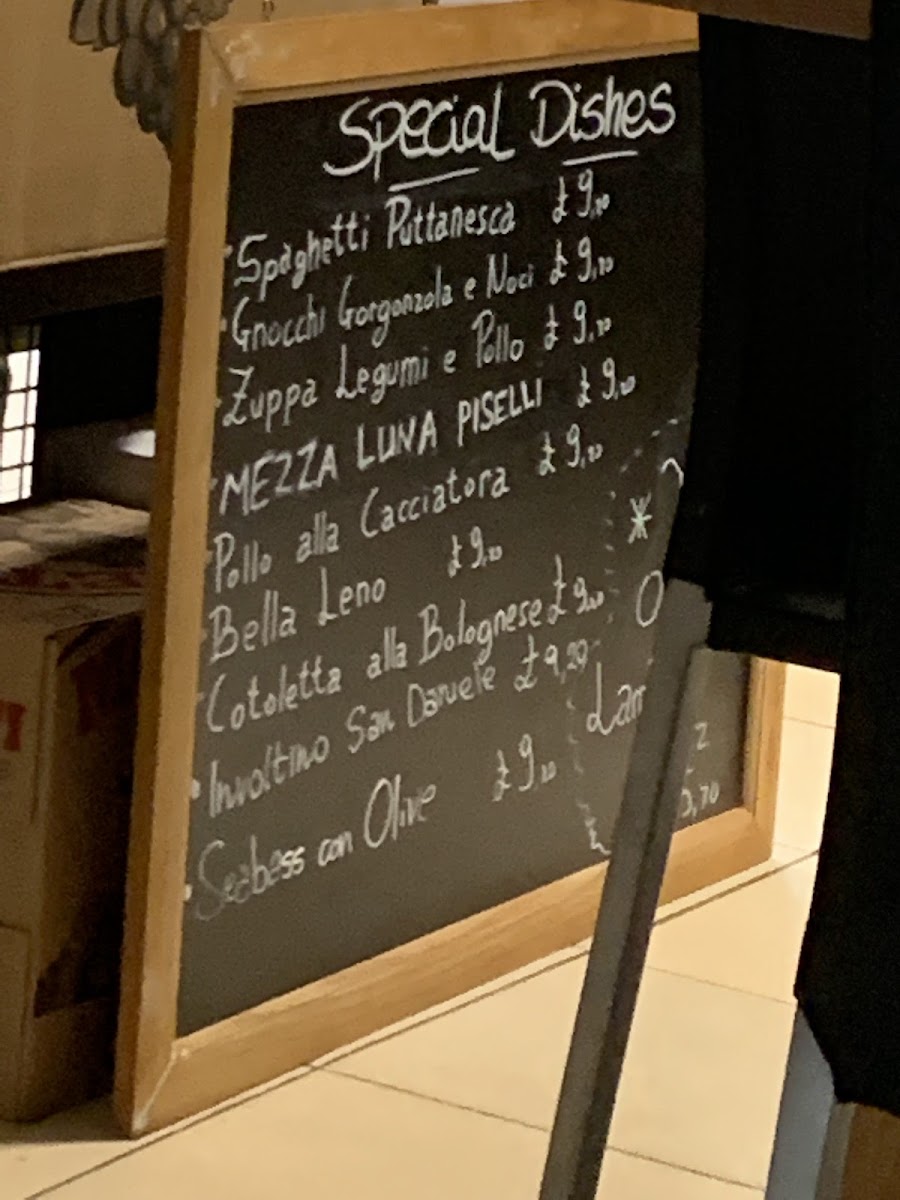 Special Dishes
Spaghetti Puttanesca £9,20
Gnocchi Gorgonzola e Noci £9,20
Zuppa Legumi e Pollo £9,20
MEZZA LUNA PISELLI £9,20
Pollo alla Cacciatora £9,20
Bella Leno £9,20
Cotoletta alla Bolognese £9,20
Involtino San Daniele £9,20
Seabass con Olive £9,20